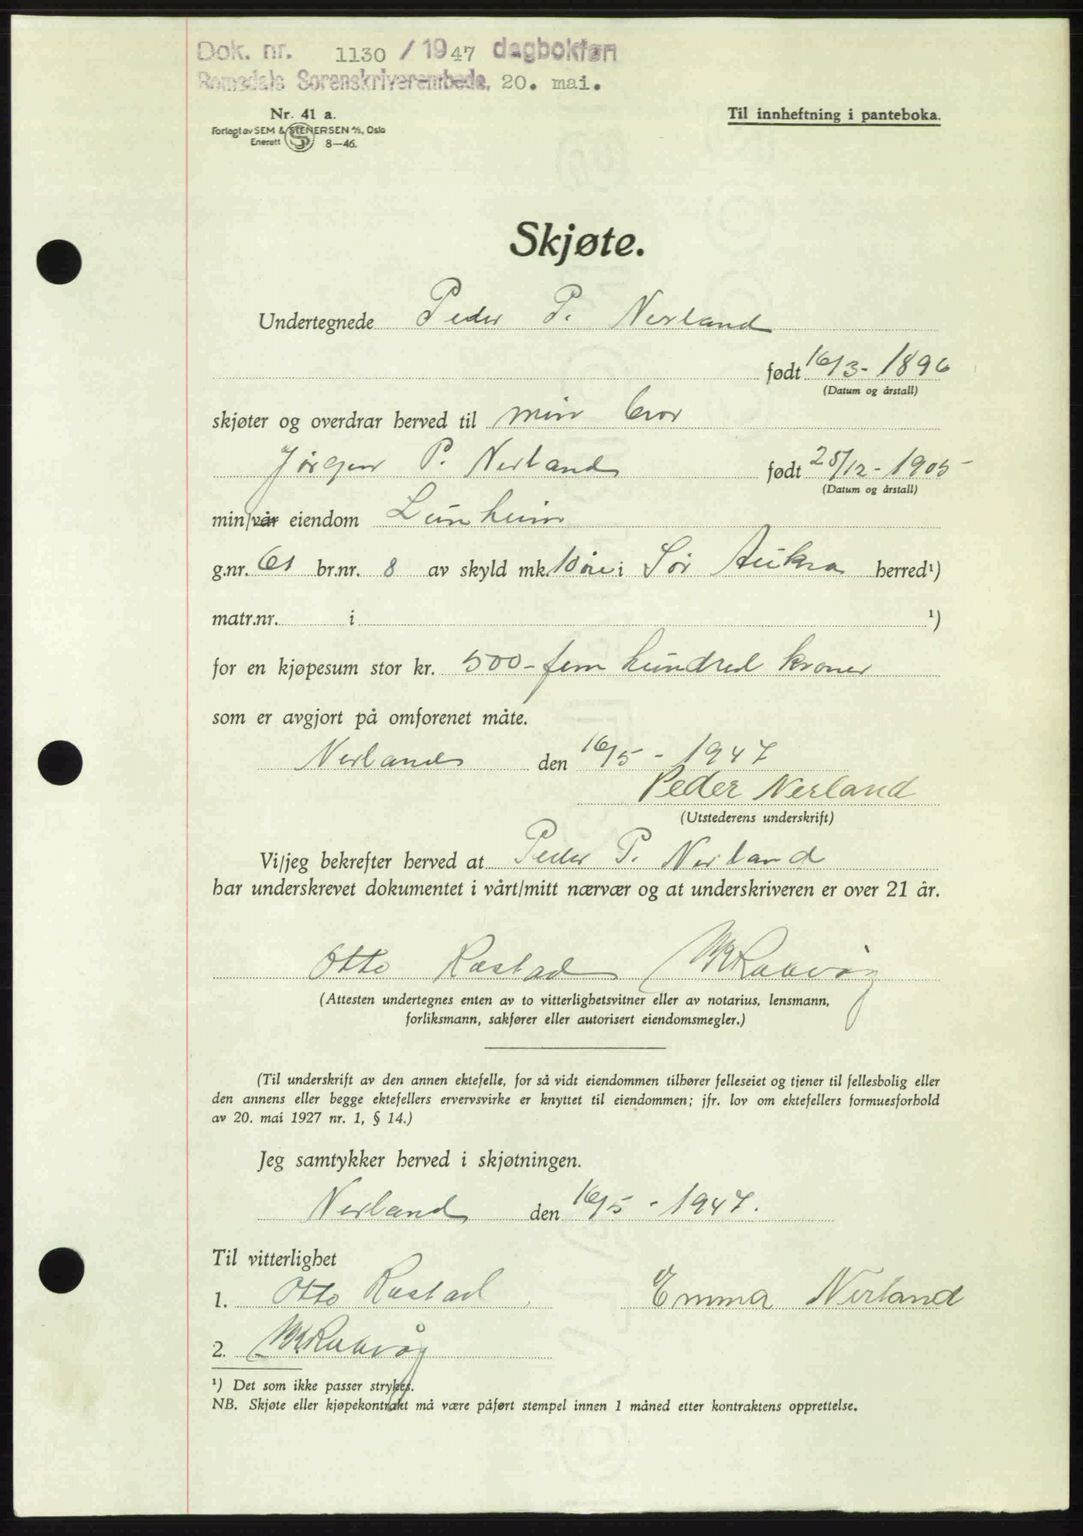 Dok. nr. 1130 / 1947 dagbokført
Romsdals Sorenskriverembede, 20. mai.
Nr. 41 a.
Forlagt av SEM & STENERSEN A/S, Oslo
Enerett 8—46.
Til innheftning i panteboka.
Skjøte.
Undertegnede Peder P. Nerland
født 16/3 - 1896
(Datum og årstall)
skjøter og overdrar herved til min bror
Jørgen P. Nerland født 28/12 - 1905
(Datum og årstall)
min/vår eiendom Lunheim
g.nr. 61 br.nr. 8 av skyld mk. 10 øre i Sør Aukra herred¹)
matr.nr. i ¹)
for en kjøpesum stor kr. 500 - fem hundred kroner
som er avgjort på omforenet måte.
Nerland den 16/5 - 1947
Peder Nerland
(Utstederens underskrift)
Vi/jeg bekrefter herved at Peder P. Nerland
har underskrevet dokumentet i vårt/mitt nærvær og at underskriveren er over 21 år.
Otto Rastad
(Attesten undertegnes enten av to vitterlighetsvitner eller av notarius, lensmann,
forliksmann, sakfører eller autorisert eiendomsmegler.)
(Til underskrift av den annen ektefelle, for så vidt eiendommen tilhører felleseiet og tjener til fellesbolig eller
den annens eller begge ektefellers ervervsvirke er knyttet til eiendommen; jfr. lov om ektefellers formuesforhold
av 20. mai 1927 nr. 1, § 14.)
Jeg samtykker herved i skjøtningen.
Nerland den 16/5 - 1947.
Til vitterlighet
1. Otto Rastad Emma Nerland
2.
¹) Det som ikke passer strykes.
NB. Skjøte eller kjøpekontrakt må være påført stempel innen 1 måned etter kontraktens opprettelse.